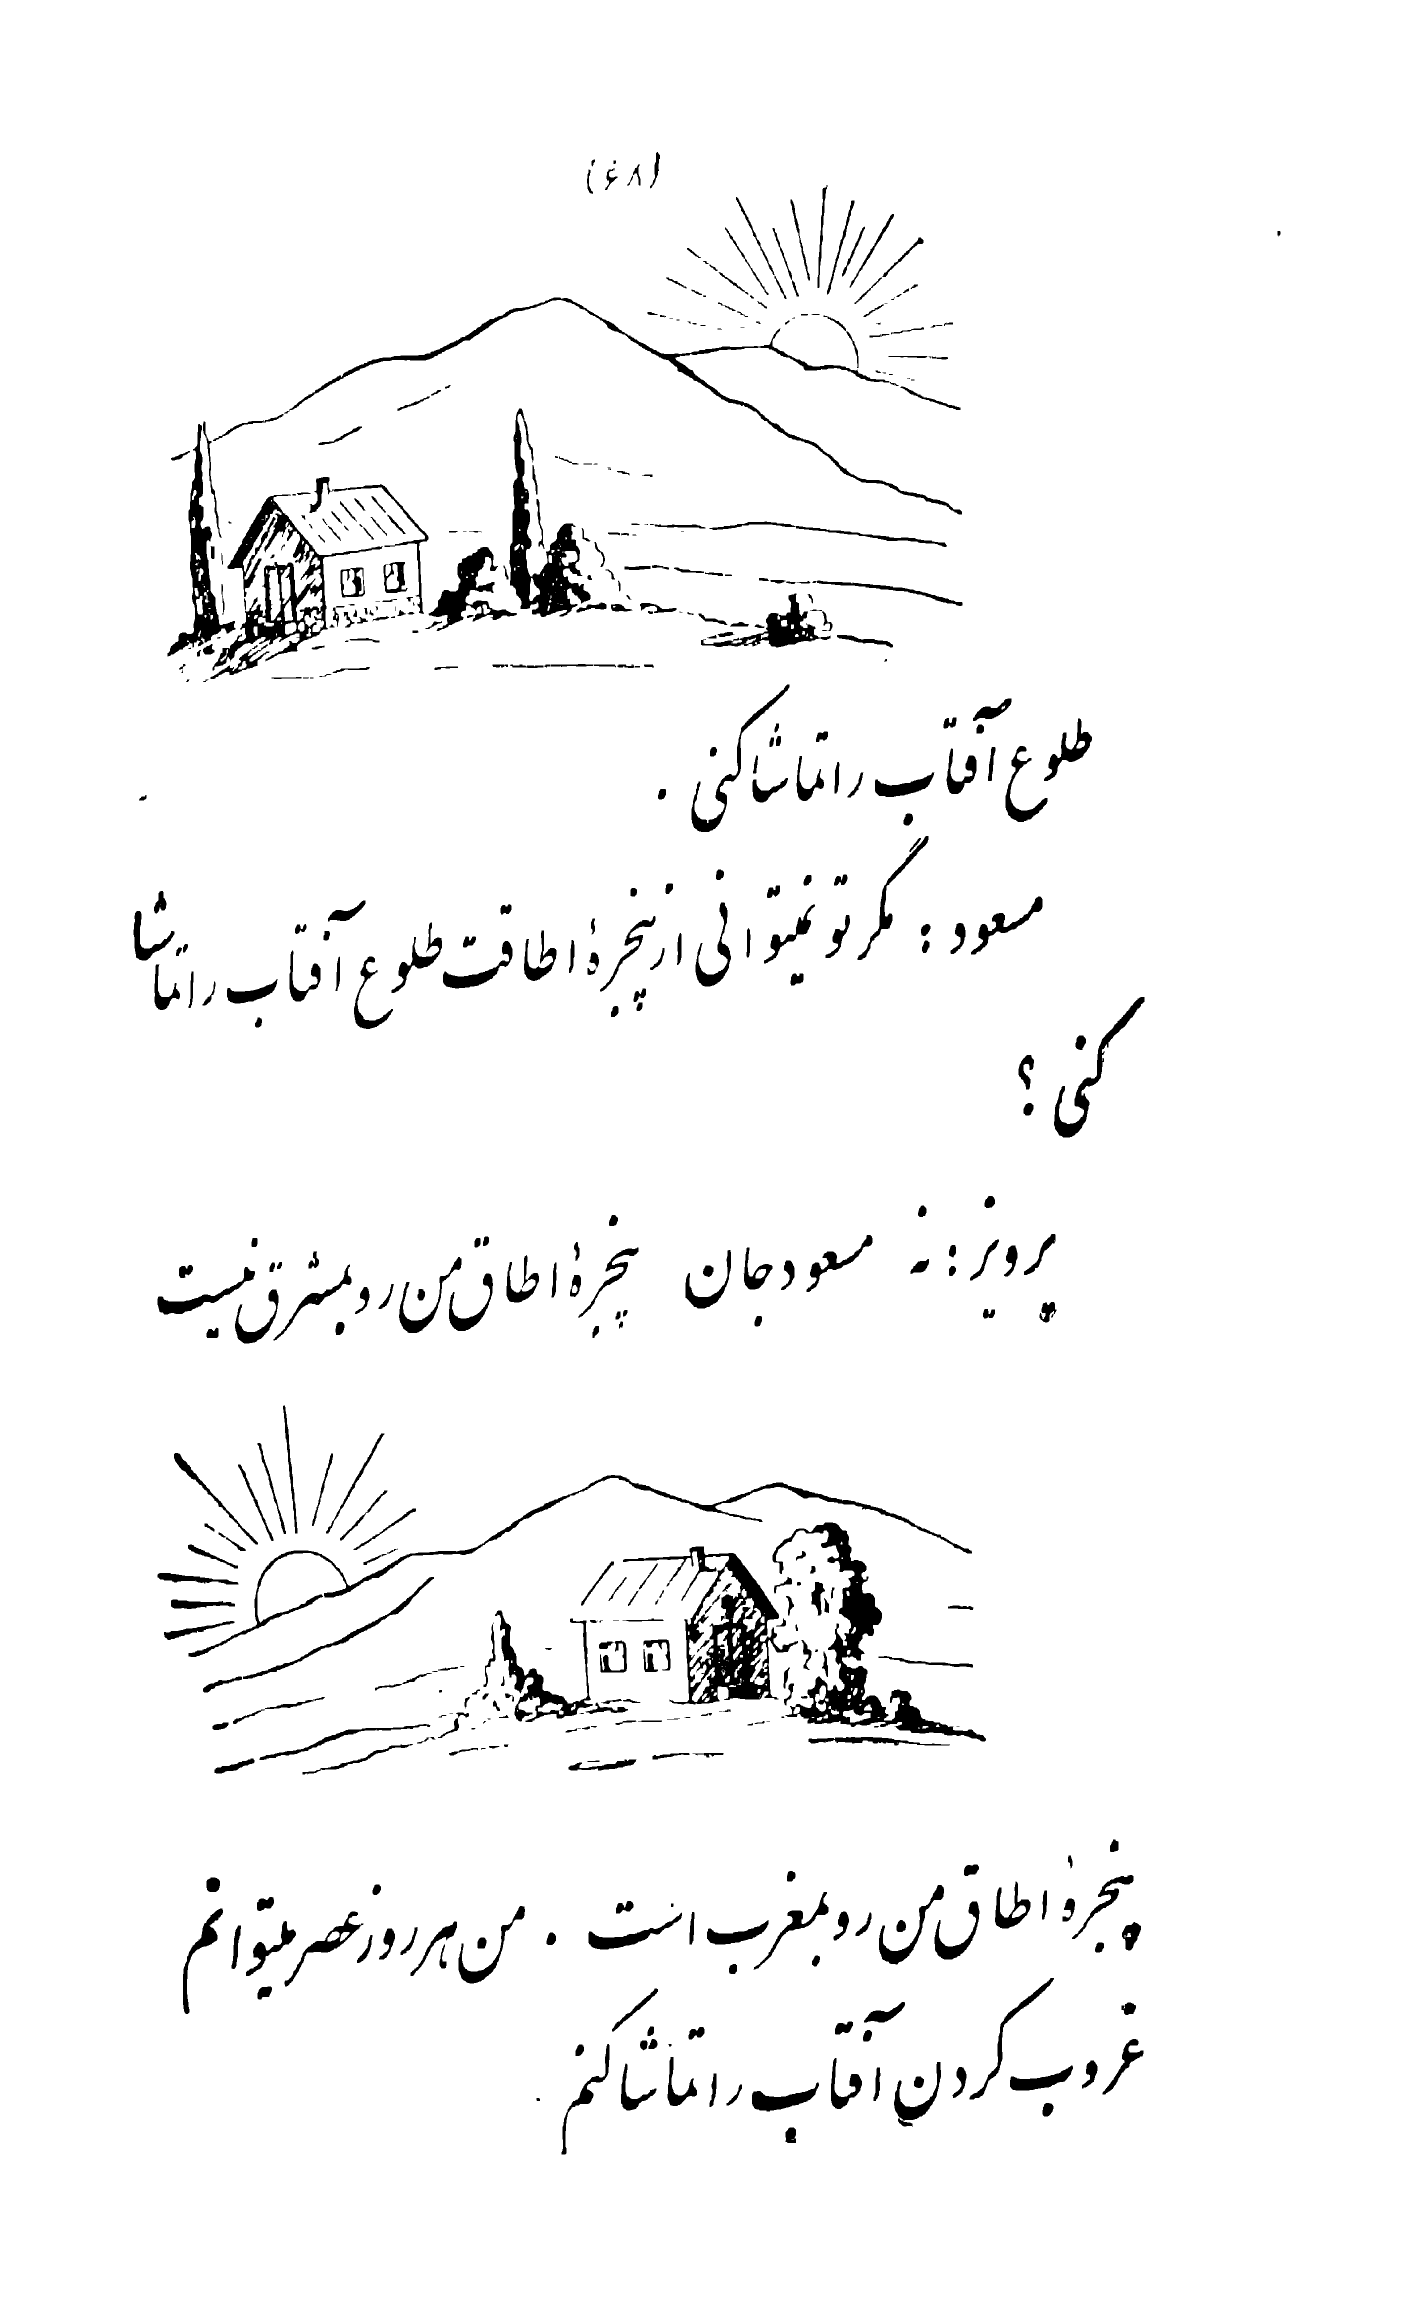 (۶۸)
طلوع آفتاب را تماشا کنی .
مسعود : مگر تو نمیتوانی از پنجرهٔ اطاقت طلوع آفتاب را تماشا
کنی ؟
پرویز : نه مسعود جان پنجرهٔ اطاق من رو بمشرق نیست
پنجرهٔ اطاق من رو بمغرب است . من هر روز عصر میتوانم
غروب کردنِ آفتاب را تماشا کنم .